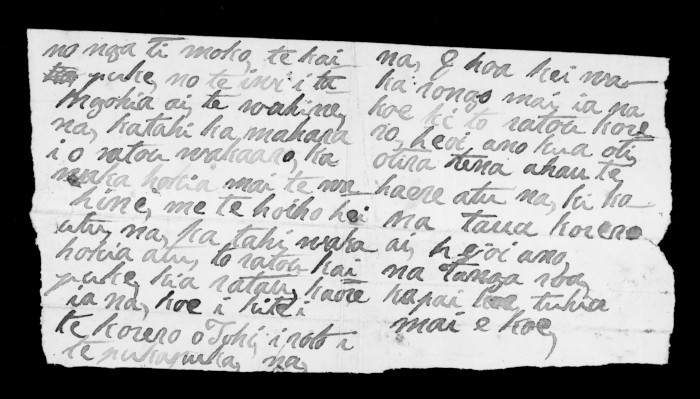 no nga ti moko, te kai
puke, no te iwi i ta
ngohia ai, te wahine,
na, katahi ka mahara
i o ratou wakaaro, ka
waka hokia mai te wa
hine, me te hoiho hei
utu, na, ka tahi, waka
hokia atu, to ratou kai
puke, kia ratau, kaore
ia na, koe i kite i
te korero o i roto i
te pukapuka, na,
na, E hoa kei wa
ka rongo mai, ia na
koe ki to ratou kore
ro, heoi ano kua oti,
otira tena ahau te
haere atu na, ki ka
na taua korero
ai, heoi ano,
na Tanga roa,
kapai koe, tuhia
mai e koe,